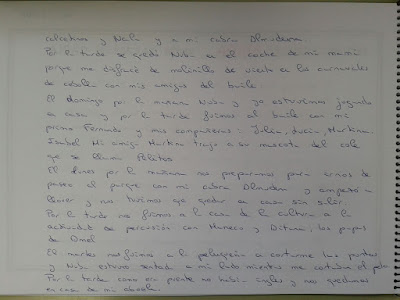 calcetines y Nala y a mi cabra Almudena
Por la tarde se quedó Nuba en el coche de mi mamá
porque me disfracé de molinillo de viento en los carnavales
de con mis amigos del baile.
El domingo por la mañana Nuba y yo estuvimos jugando
en casa y por la tarde fuimos al baile con mi
primo Fernando y mis compañeras: Julia, Lucía, Martina,
Isabel. Mi amiga Martina trajo a su mascota del cole
que se llama Palitos
El lunes por la mañana nos preparamos para irnos de
paseo al parque con mi cabra Almudena y empezó a
llover y nos tuvimos que quedar en casa sin salir.
Por la tarde nos fuimos a la casa de la cultura a la
actividad de percusión con y , los papás
de Omal
El martes nos fuimos a la peluquería a cortarme las puntas
y Nuba estuvo sentada a mi lado mientras me cortaban el pelo
Por la tarde como era puente no había inglés y nos quedamos
en casa de mi abuela.